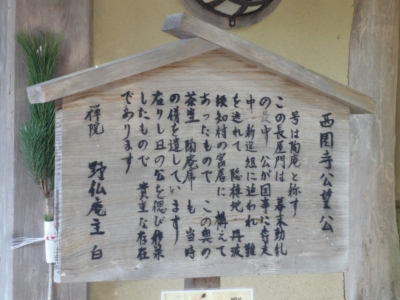 西園寺公望公
号は陶庵と称す
この長屋門は 幕末動乱
の 中 公が国事に奔走
中 新選組に追われ 難
を逃れて 臨捿地 丹波
須知村の宮居に 構えて
あったもので この奥の
茶室 陶庵 も 当時
の侭を遺しています
在りし日の公を偲び 移築
したもので 貴重な存在
であります
禅院 野仏庵主 白